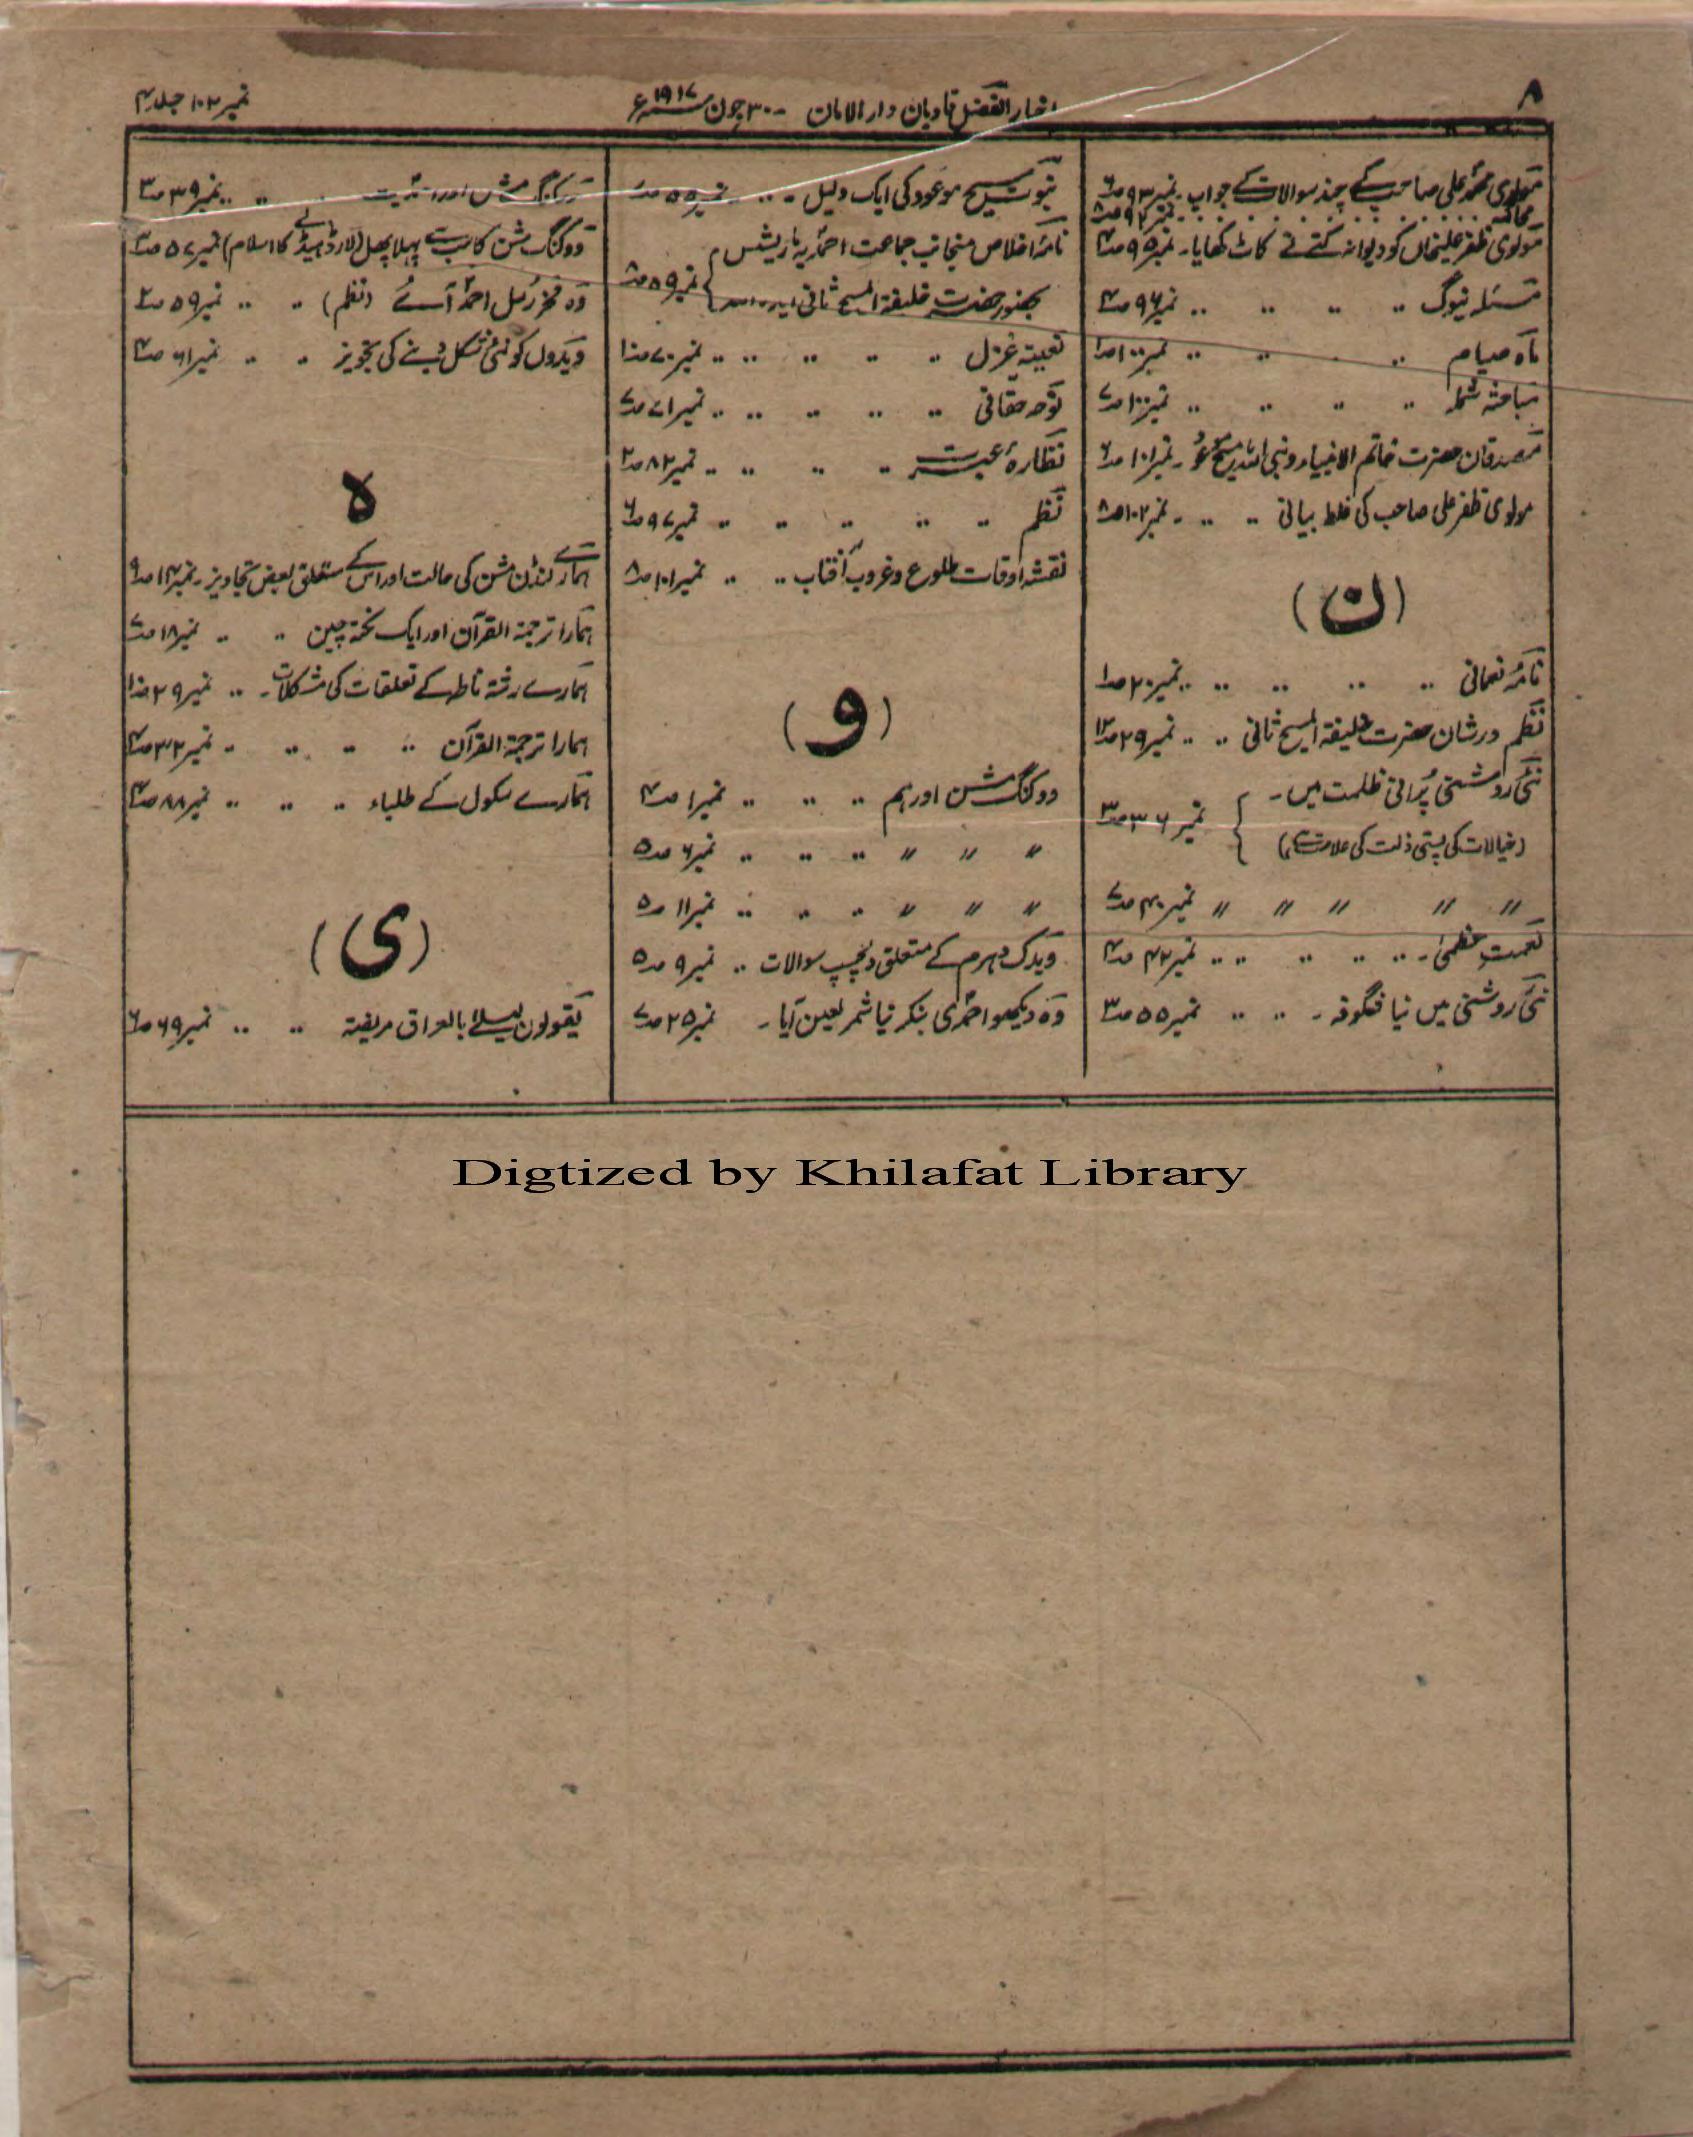 ۸
اخبار الفضل قادیان دار الامان - ۳۰ جون ۱۹۱۷ء
نمبر ۱۰۲ جلد ۴
مولوی محمد علی صاحب کے چند سوالات کے جواب - نمبر ۹۳ ص۶
محاکمہ .. .. نمبر ۹۴ ص۸
مولوی ظفر علیخاں کو دیوانہ کتے نے کاٹ کھایا - نمبر ۹۵ ص۴
مسئلہ نیوگ .. .. .. .. نمبر ۹۶ ص۴
ماہ صیام .. .. .. .. نمبر ۱۰۰ ص۱
مباحثہ شملہ .. .. .. .. نمبر ۱۰۰ ص۷
مصدقان حضرت خاتم الانبیاء و نبی اللہ مسیح موعودؑ - نمبر ۱۰۱ ص۶
مولوی ظفر علی صاحب کی غلط بیانی .. .. - نمبر ۱۰۲ ص۸
(ن)
نامۂ نعمانی .. .. .. .. نمبر ۲۰ ص۱
نظم در شان حضرت خلیفۃ المسیح ثانی .. .. نمبر ۲۹ ص۱۲
نئی روشنی پُرانی ظلمت میں -
(خیالات کی پستی ذلت کی علامت ہے) نمبر ۳۶ ص۳
〃 〃 〃 〃 〃 نمبر ۴۰ ص۷
نعمتِ عظمیٰ - .. .. .. .. نمبر ۴۲ ص۴
نئی روشنی میں نیا شگوفہ - .. .. نمبر ۵۵ ص۳
نبوت مسیح موعود کی ایک دلیل - .. .. نمبر ۵۵
نامۂ اخلاص منجانب جماعت احمدیہ ماریشس
بحضور حضرت خلیفۃ المسیح ثانی نمبر ۵۹ ص۸
نعتیہ غزل .. .. .. .. .. نمبر ۷۰ ص۱۰
نوحہ حقانی .. .. .. .. .. نمبر ۷۱ ص۷
نظارۂ عبرت .. .. .. .. نمبر ۸۲ ص۲
نظم .. .. .. .. .. نمبر ۹۷ ص۶
نقشہ اوقات طلوع و غروب آفتاب .. .. نمبر ۱۰۱ ص۸
(و)
ووکنگ مشن اور ہم .. .. .. نمبر ۱ ص۴
〃 〃 〃 .. .. .. نمبر ۶ ص۵
〃 〃 〃 .. .. .. نمبر ۱۱ ص۵
ویدک دہرم کے متعلق دلچسپ سوالات .. نمبر ۹ ص۵
وہ دیکھو احمدی بنکر نیا شمر لعین آیا - نمبر ۲۵ ص۷
ووکنگ مشن اور .. .. نمبر ۳۹ ص۳
ووکنگ مشن کا سب سے پہلا پھل (لارڈ ہیڈلے کا اسلام) نمبر ۵۷ ص۳
وہ فخر رسل احمدؐ آئے (نظم) .. .. نمبر ۵۹ ص۲
ویدوں کو نئی شکل دینے کی تجویز .. .. نمبر ۶۱ ص۴
ہ
ہمارے لنڈن مشن کی حالت اور اس کے متعلق بعض تجاویز - نمبر ۱۴ ص۹
ہمارا ترجمۃ القرآن اور ایک نکتہ چین .. .. نمبر ۱۸ ص۷
ہمارے رشتہ ناطہ کے تعلقات کی مشکلات - .. نمبر ۲۹ ص۱۰
ہمارا ترجمۃ القرآن .. .. .. .. نمبر ۳۲ ص۴
ہمارے سکول کے طلباء .. .. .. نمبر ۸۸ ص۴
(ی)
یقولون لیلیٰ بالعراق مریضۃ .. .. نمبر ۶۹ ص۶
Digtized by Khilafat Library